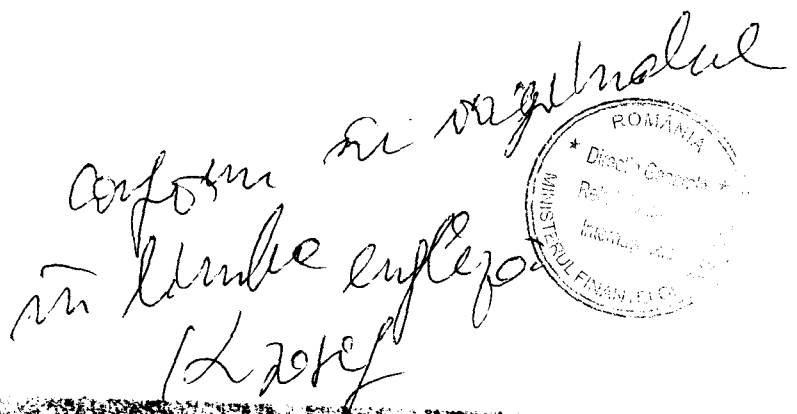 conform cu originalul
în limba engleză
ROMÂNIA
* Direcția Generală *
Internaționale
MINISTERUL FINANȚELOR